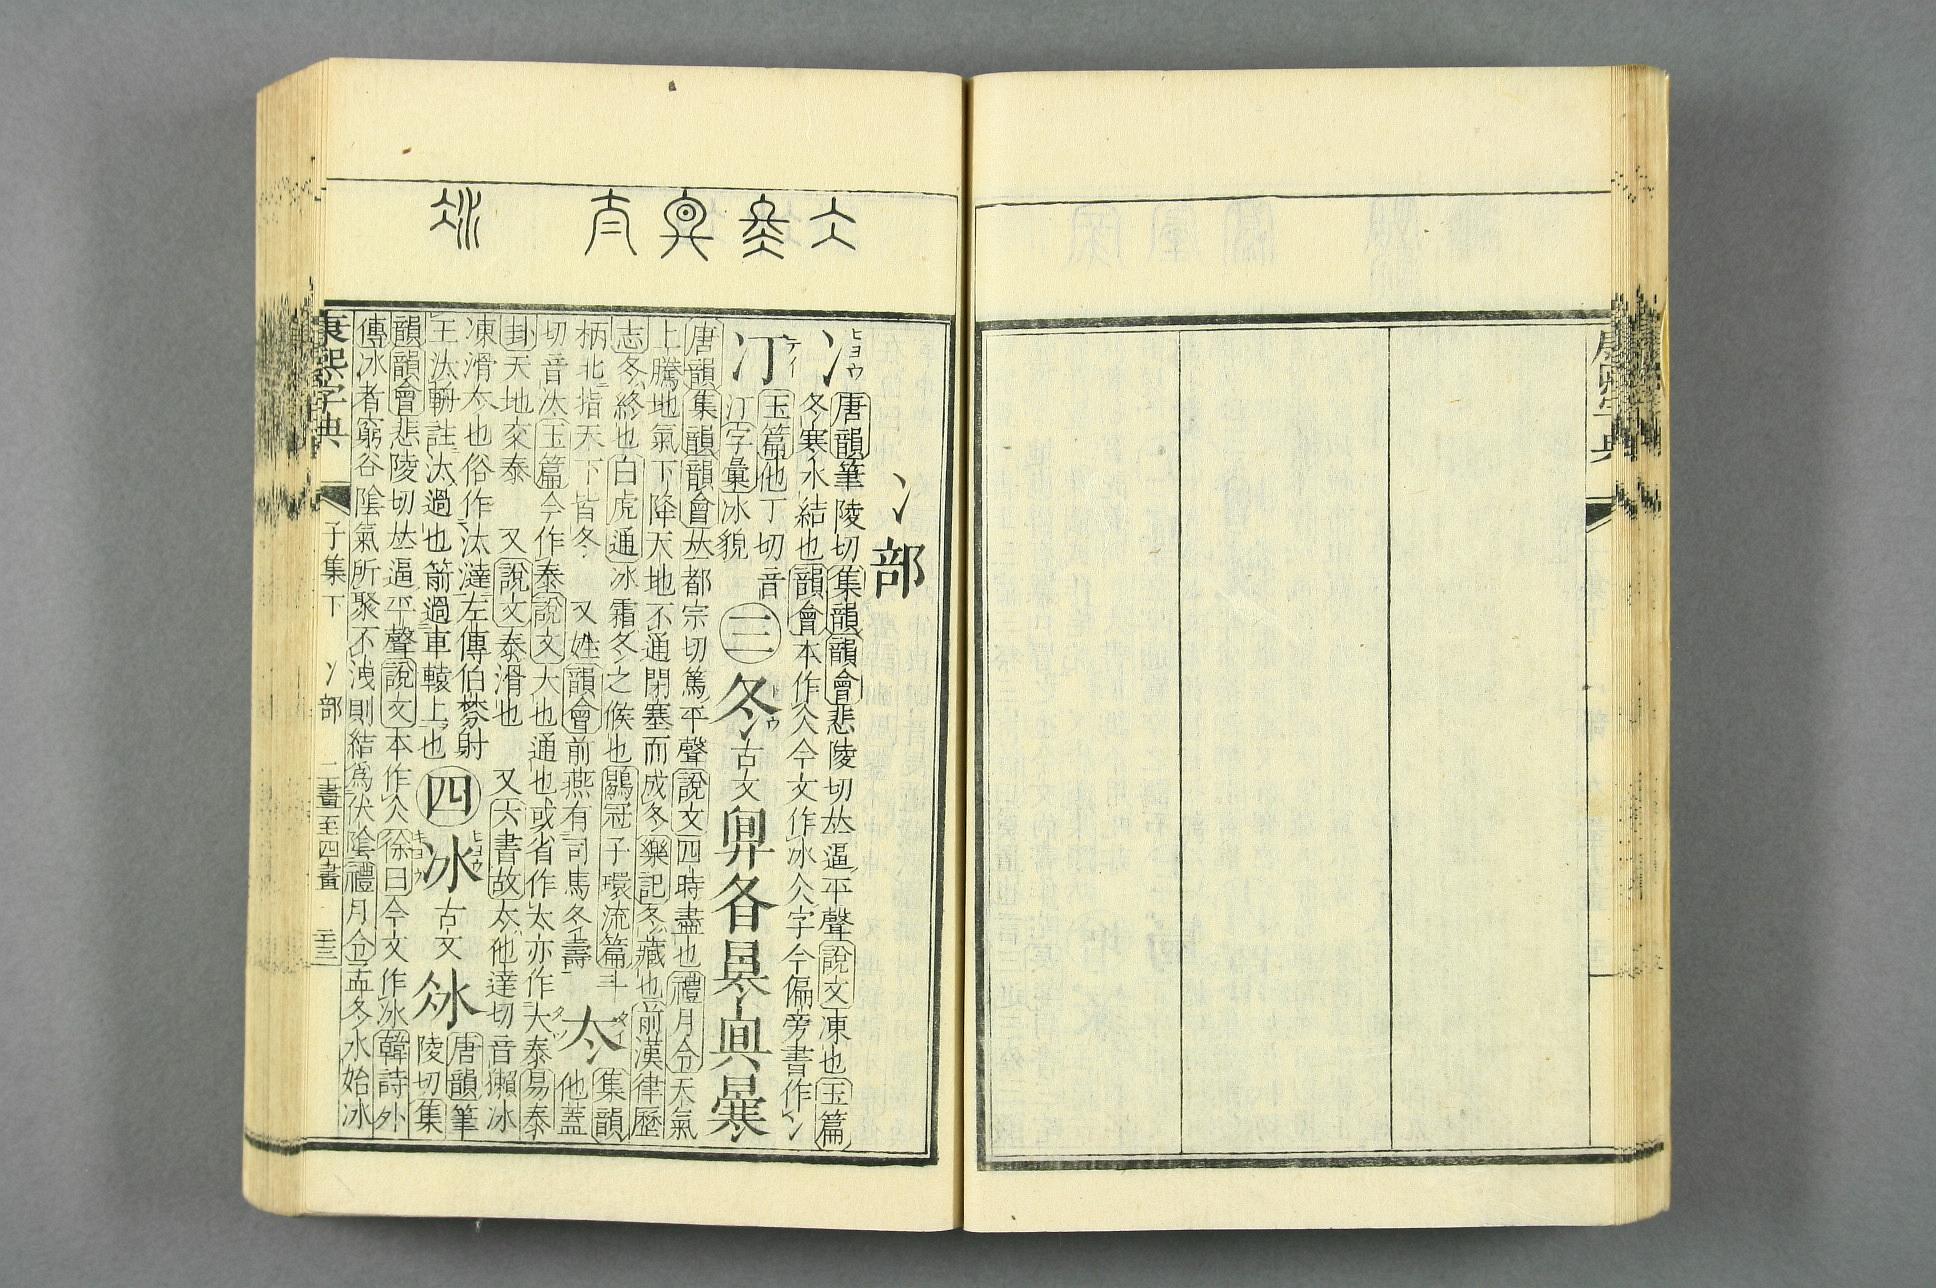 康熙字典
冫部
冫ヒョウ 唐韻筆陵切集韻韻會悲陵切𠀤逼平聲說文凍也玉篇
冬寒水結也韻會本作仌今文作冰仌字今偏旁書作冫
汀テイ 玉篇他丁切音
汀字彙冰貌 三 冬トウ 古文
唐韻集韻韻會𠀤都宗切篤平聲說文四時盡也禮月令天氣
上騰地氣下降天地不通閉塞而成冬樂記冬藏也前漢律歷
志冬終也白虎通冰霜冬之候也鶡冠子環流篇斗
柄北指天下皆冬 又姓韻會前燕有司馬冬壽 夳タイ 集韻
他蓋
切音汏玉篇今作泰說文大也通也或省作太亦作大泰易泰
卦天地交泰 又說文泰滑也 又六書故太他達切音獺冰
凍滑夳也俗作汰澾左傳伯棼射
王汰輈註汰過也箭過車轅上也 四 冰ヒョウ 古文 唐韻筆
陵切集
韻韻會悲陵切𠀤逼平聲說文本作仌徐曰今文作冰韓詩外
傳冰者窮谷陰氣所聚不洩則結爲伏陰禮月令孟冬水始冰
康熙字典 子集下 冫部 二畫至四畫